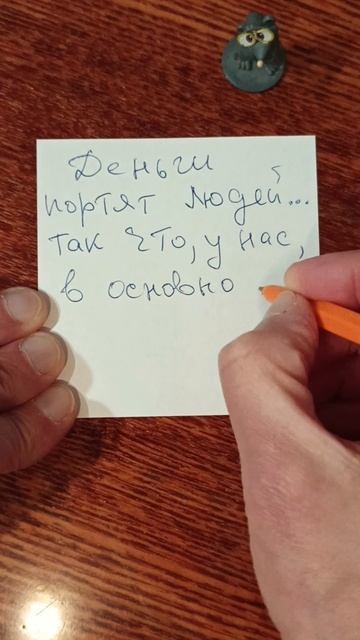 Деньги
портят людей...
так что, у нас,
в основно